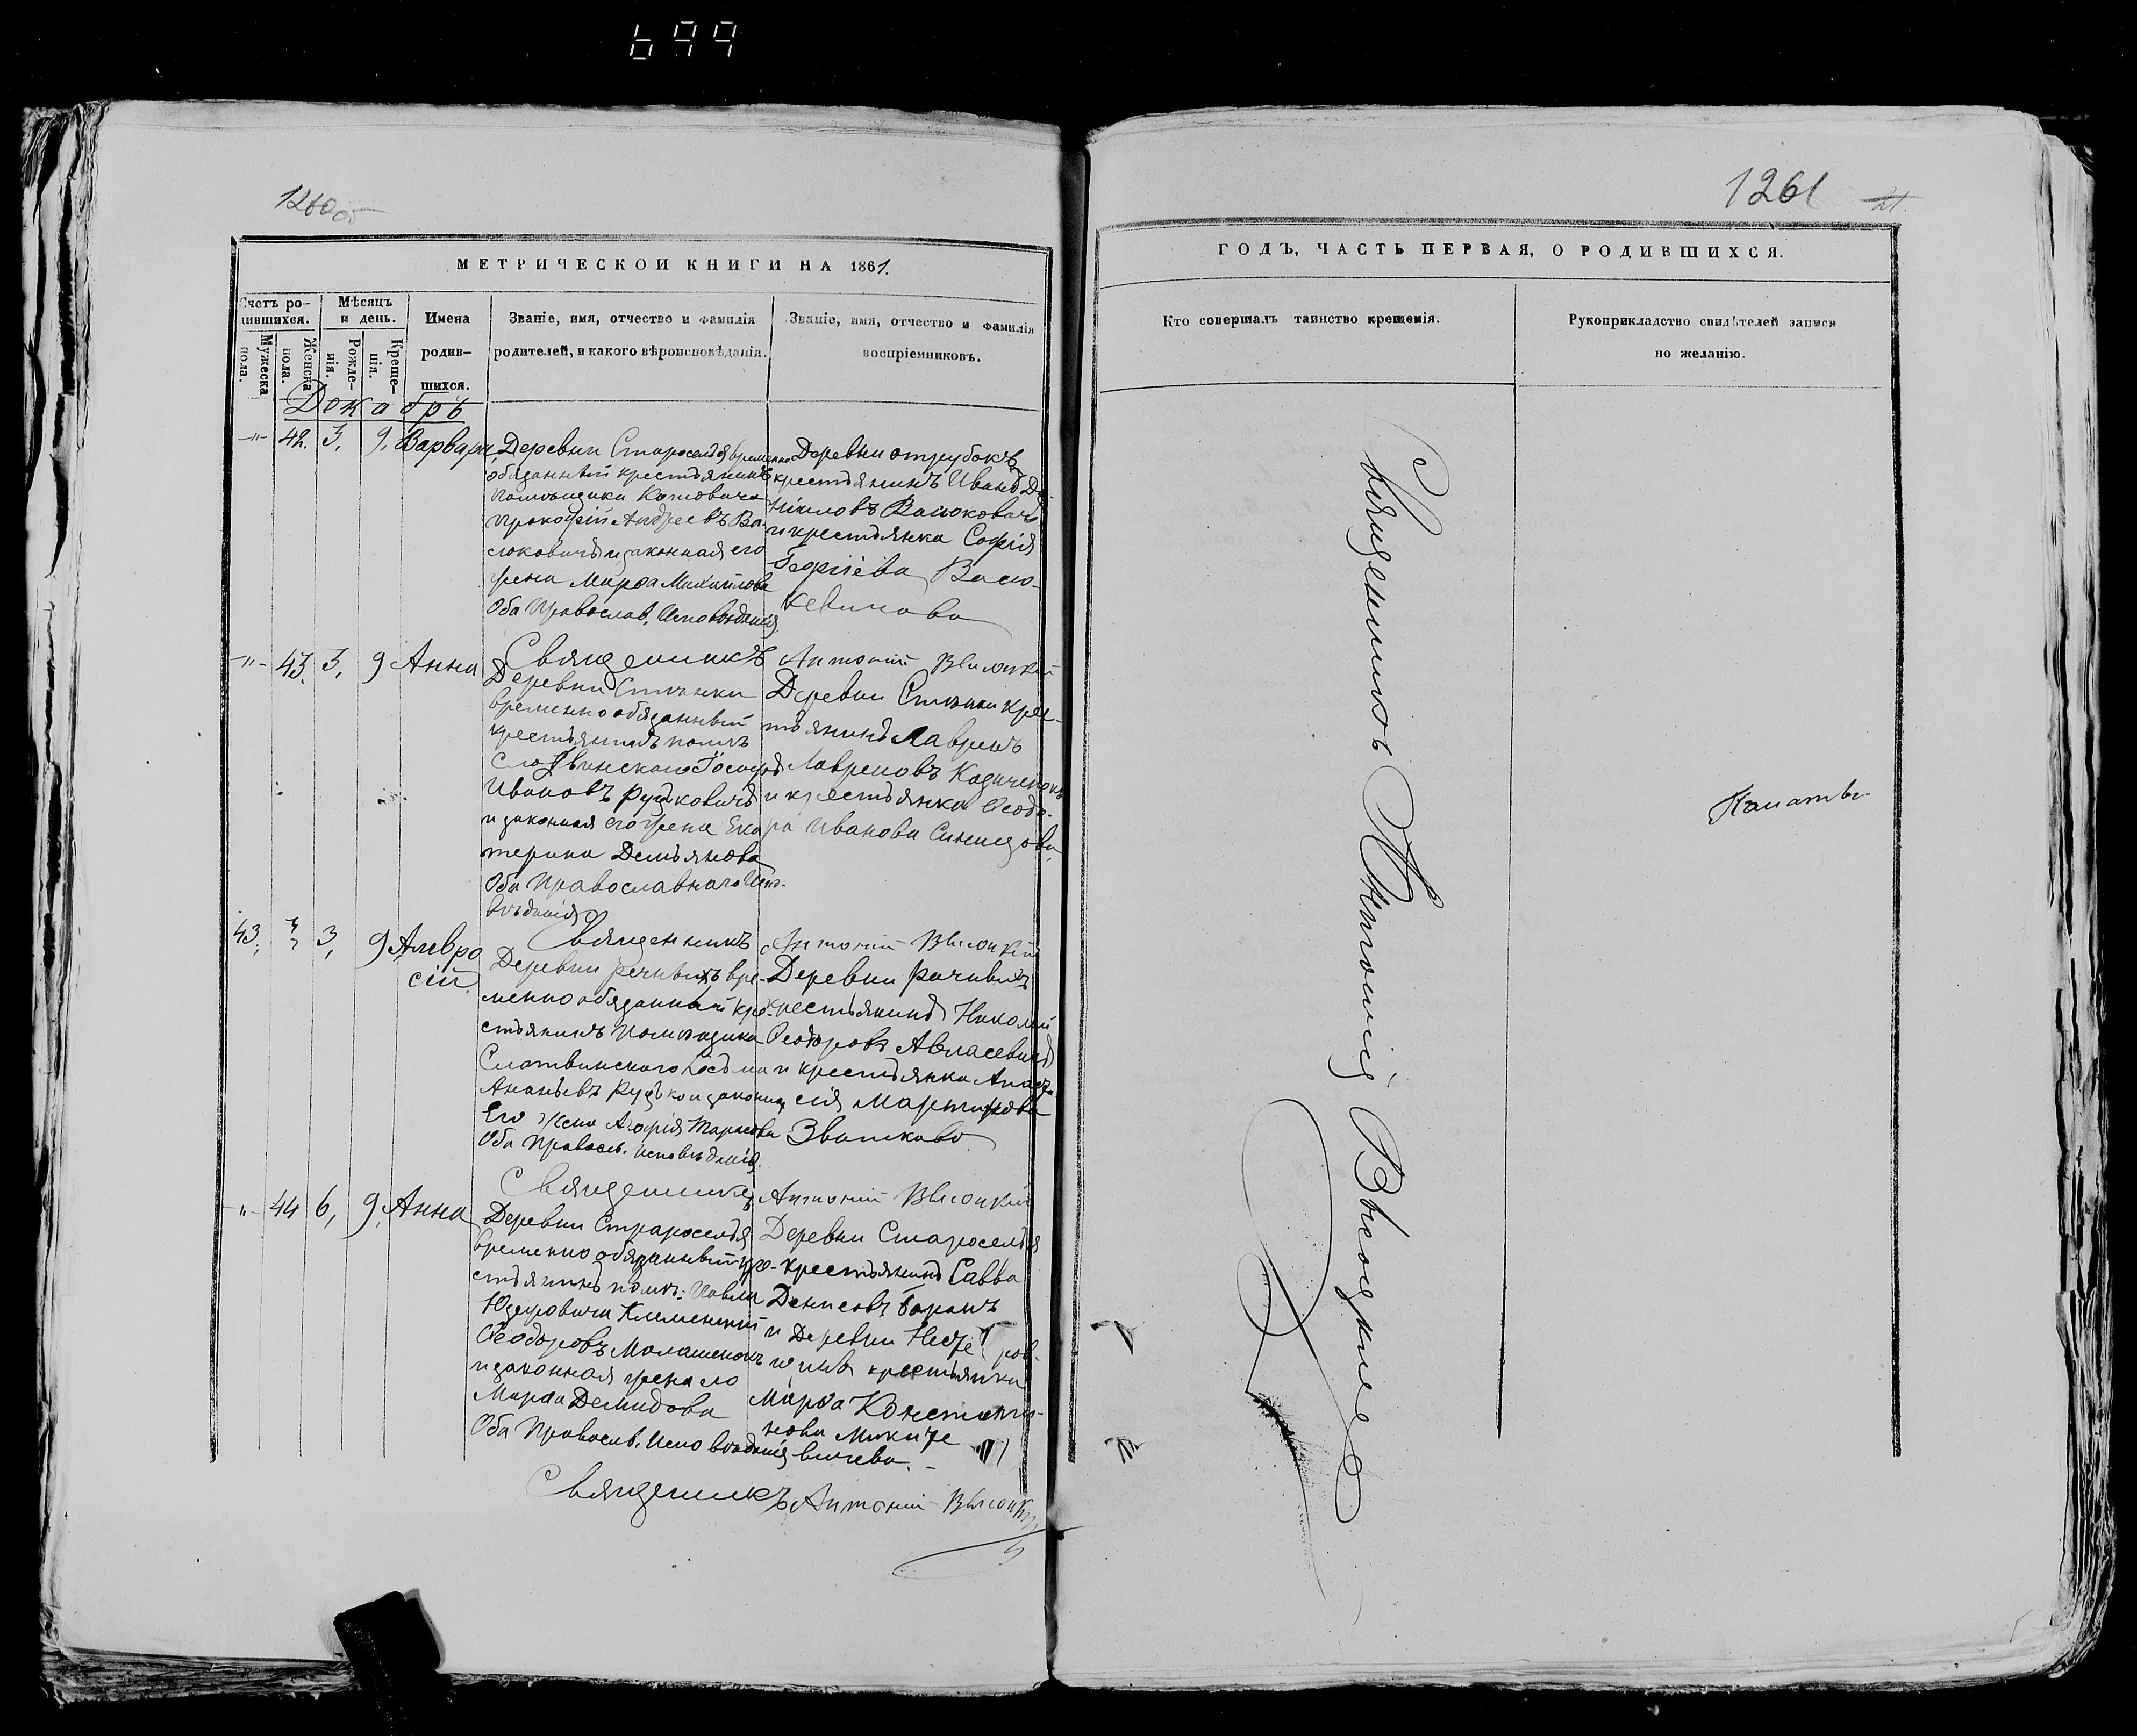 699
1260 об
МЕТРИЧЕСКОЙ КНИГИ НА 1861.
Счетъ родившихся.
Мужеска пола.
Женска пола.
Мѣсяцъ и день.
Рожденія.
Крещенія.
Имена родившихся.
Званіе, имя, отчество и фамилія родителей, и какого вѣроисповѣданія.
Званіе, имя, отчество и фамилія воспріемниковъ.
Декабрь
-"- 42. 3, 9, Варвара
Деревни Староселья временно
обязанный крестьянинъ
помѣщика
Прокофій Андреевъ Ва-
сюковичъ и законная его
жена Марѳа Михайлова
Оба Православ. Исповѣданія
Деревни
крестьянинъ Иванъ Да-
ніиловъ Васюковичъ
и крестьянка Софія
Георгіева Васю-
кевичова
Священникъ Антоній Высоцкій
-"- 43. 3, 9 Анна
Деревни Стѣнки
временно обязанный
крестьянинъ помѣ.
Слотвинского
Ивановъ Рудьковичъ
и законная его жена Ека
терина Демьянова
Оба Православнаго Испо-
вѣданія
Деревни Стѣнки крес-
тьянинъ Лавринъ
Лавреновъ
и крестьянка Ѳеодо-
ра Иванова
Священникъ Антоній Высоцкій
43, " 3, 9 Амвро
сій
Деревни вре-
менно обязанный кре-
стьянинъ помѣщика
Слотвинского Косьма
Ананьевъ Рудько и законная
Его Жена Агафія Тарасова
Оба Правосл. исповѣданія.
Деревни
крестьянинъ Николай
Ѳеодоровъ Авласевичъ
и крестьянка Анаста
сія Мартинова
Званкова
Священникъ Антоній Высоцкій
-"- 44 6, 9, Анна
Деревни Страроселья
временно обязанный кре-
стьянинъ помѣ: Павла
Юзефовича Климентій
Ѳеодоровъ Малашенокъ
и законная жена его
Марѳа Демидова
Оба Правосл. Исповѣданія
Деревни Староселья
крестьянинъ Савва
Денисовъ Баранъ
и Деревни
крестьянка
Марѳа Константи-
нова Мики
вичева.
Священникъ Антоній Высоцкій
1261
21.
ГОДЪ, ЧАСТЬ ПЕРВАЯ, О РОДИВШИХСЯ.
Кто совершалъ таинство крещенія.
Рукоприкладство свидѣтелей записи по желанію.
Священникъ Антоній Высоцкій